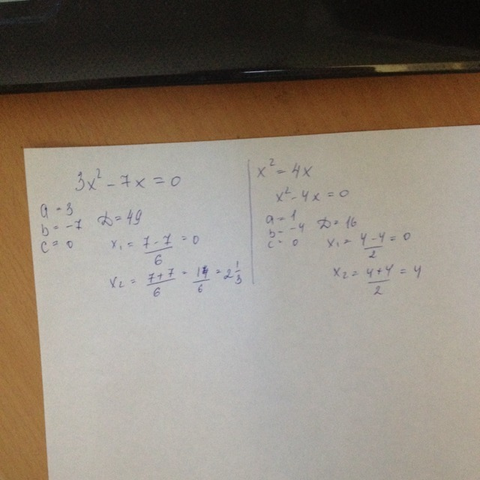 3x² - 7x = 0
a = 3
b = -7 D = 49
c = 0 x₁ = (7-7)/6 = 0
x₂ = (7+7)/6 = 14/6 = 2 1/3
x² = 4x
x² - 4x = 0
a = 1
b = -4 D = 16
c = 0 x₁ = (4-4)/2 = 0
x₂ = (4+4)/2 = 4